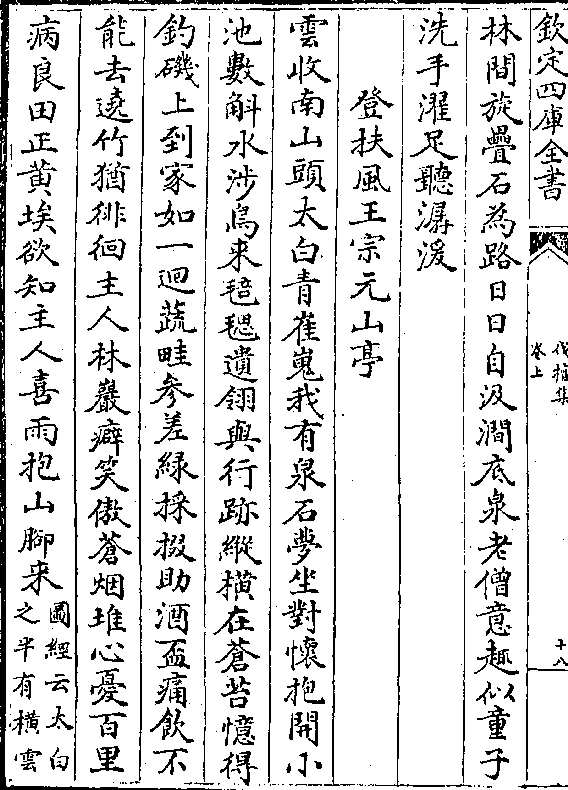 欽定四庫全書
伐檀集
卷上
十八
林間旋疊石為路日日自汲澗底泉老僧意趣似童子
洗手濯足聽潺湲
登扶風王宗元山亭
雲收南山頭太白青崔嵬我有泉石夢坐對懷抱開小
池數斛水涉鳥来毰毸遺翎與行跡縱橫在蒼苔憶得
釣磯上到家如一迴蔬畦参差緑採掇助酒盃痛飲不
能去遶竹猶徘徊主人林巖癖笑傲蒼烟堆心憂百里
病良田正黄埃欲知主人喜雨抱山腳来圖經云太白
之半有横雲